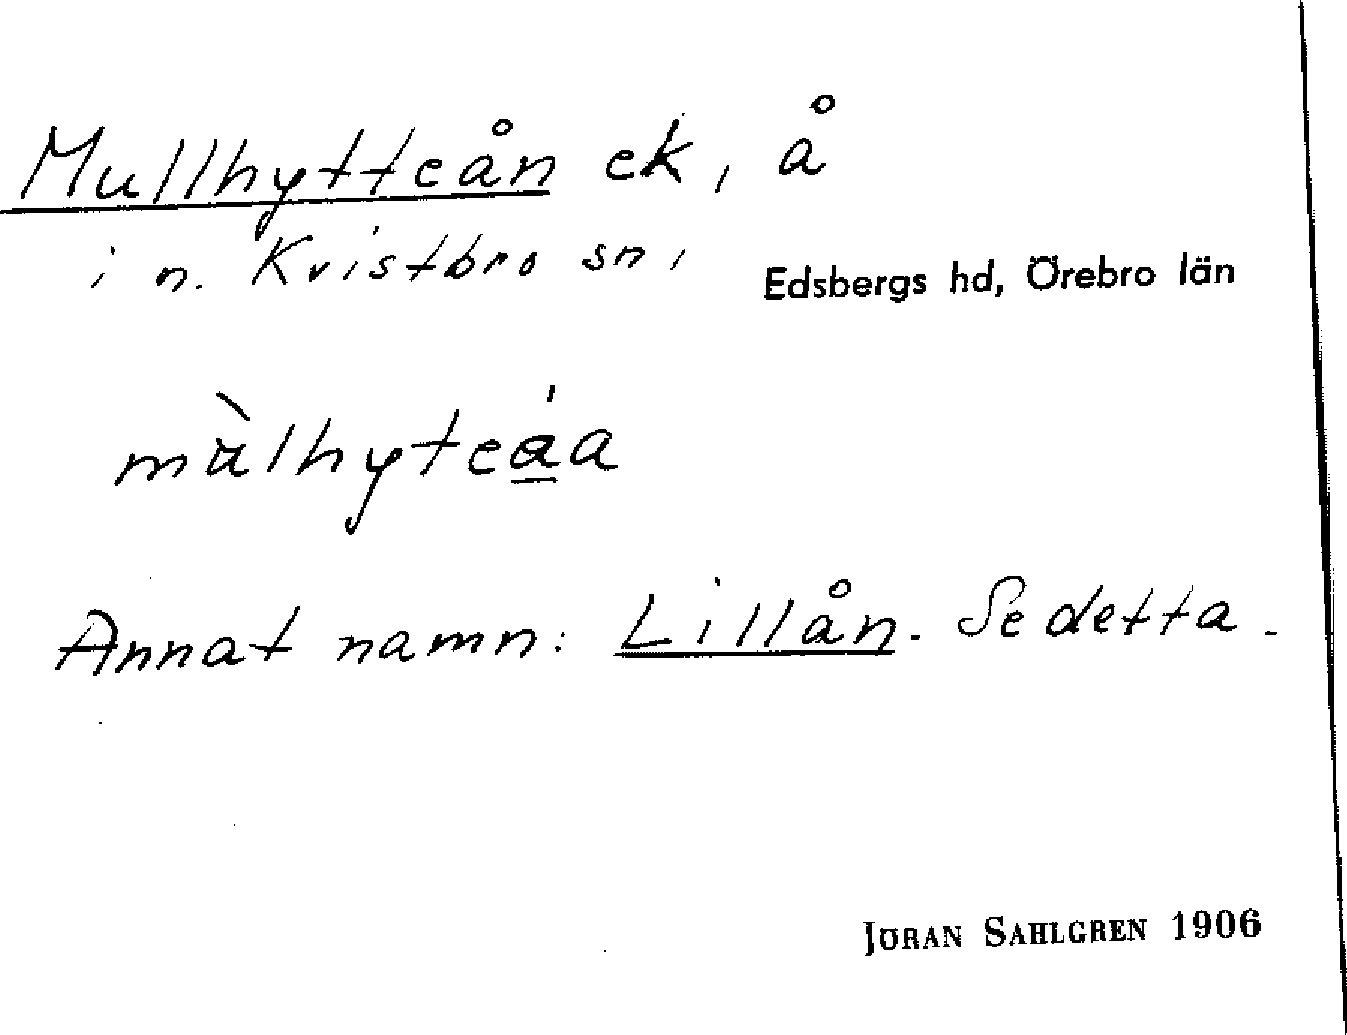 Mullhytteån ek, å
i n. Kvistbro sn,
Edsbergs hd, Örebro län
mùlhyteá̱a
Annat namn: Lillån. Se detta.
JÖRAN SAHLGREN 1906